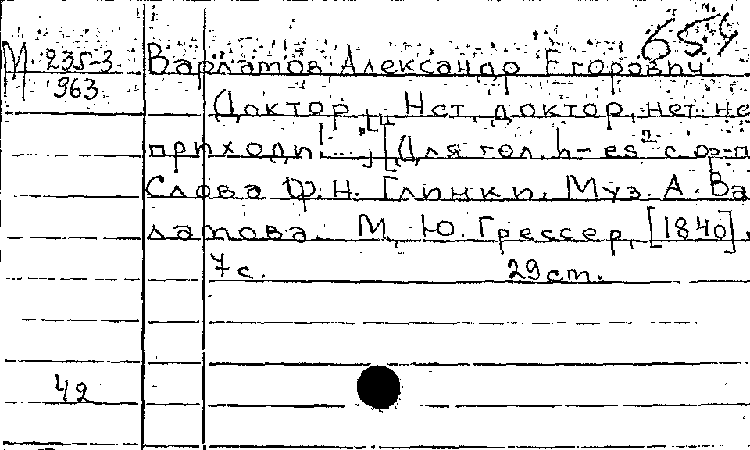 654
М 235-3
963
Варламов Александр Егорович
Доктор. „Нет, доктор, нет, не
приходи!...“ [Для гол. h-es² с ф-п
Слова Ф. Н. Глинки. Муз. А. Ва
ламова. М., Ю. Грессер, [1840].
7 с. 29 ст.
42